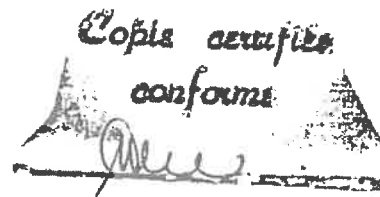 Copie certifiée
conforme